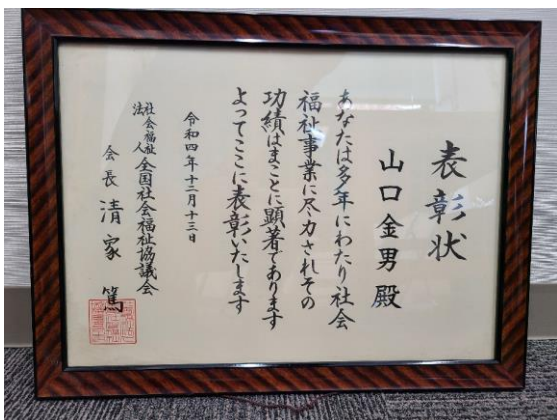 表彰状
山口金男殿
あなたは多年にわたり社会
福祉事業に尽力されその
功績はまことに顕著であります
よってここに表彰いたします
令和四年十二月十三日
社会福祉法人 全国社会福祉協議会
会長 清家篤